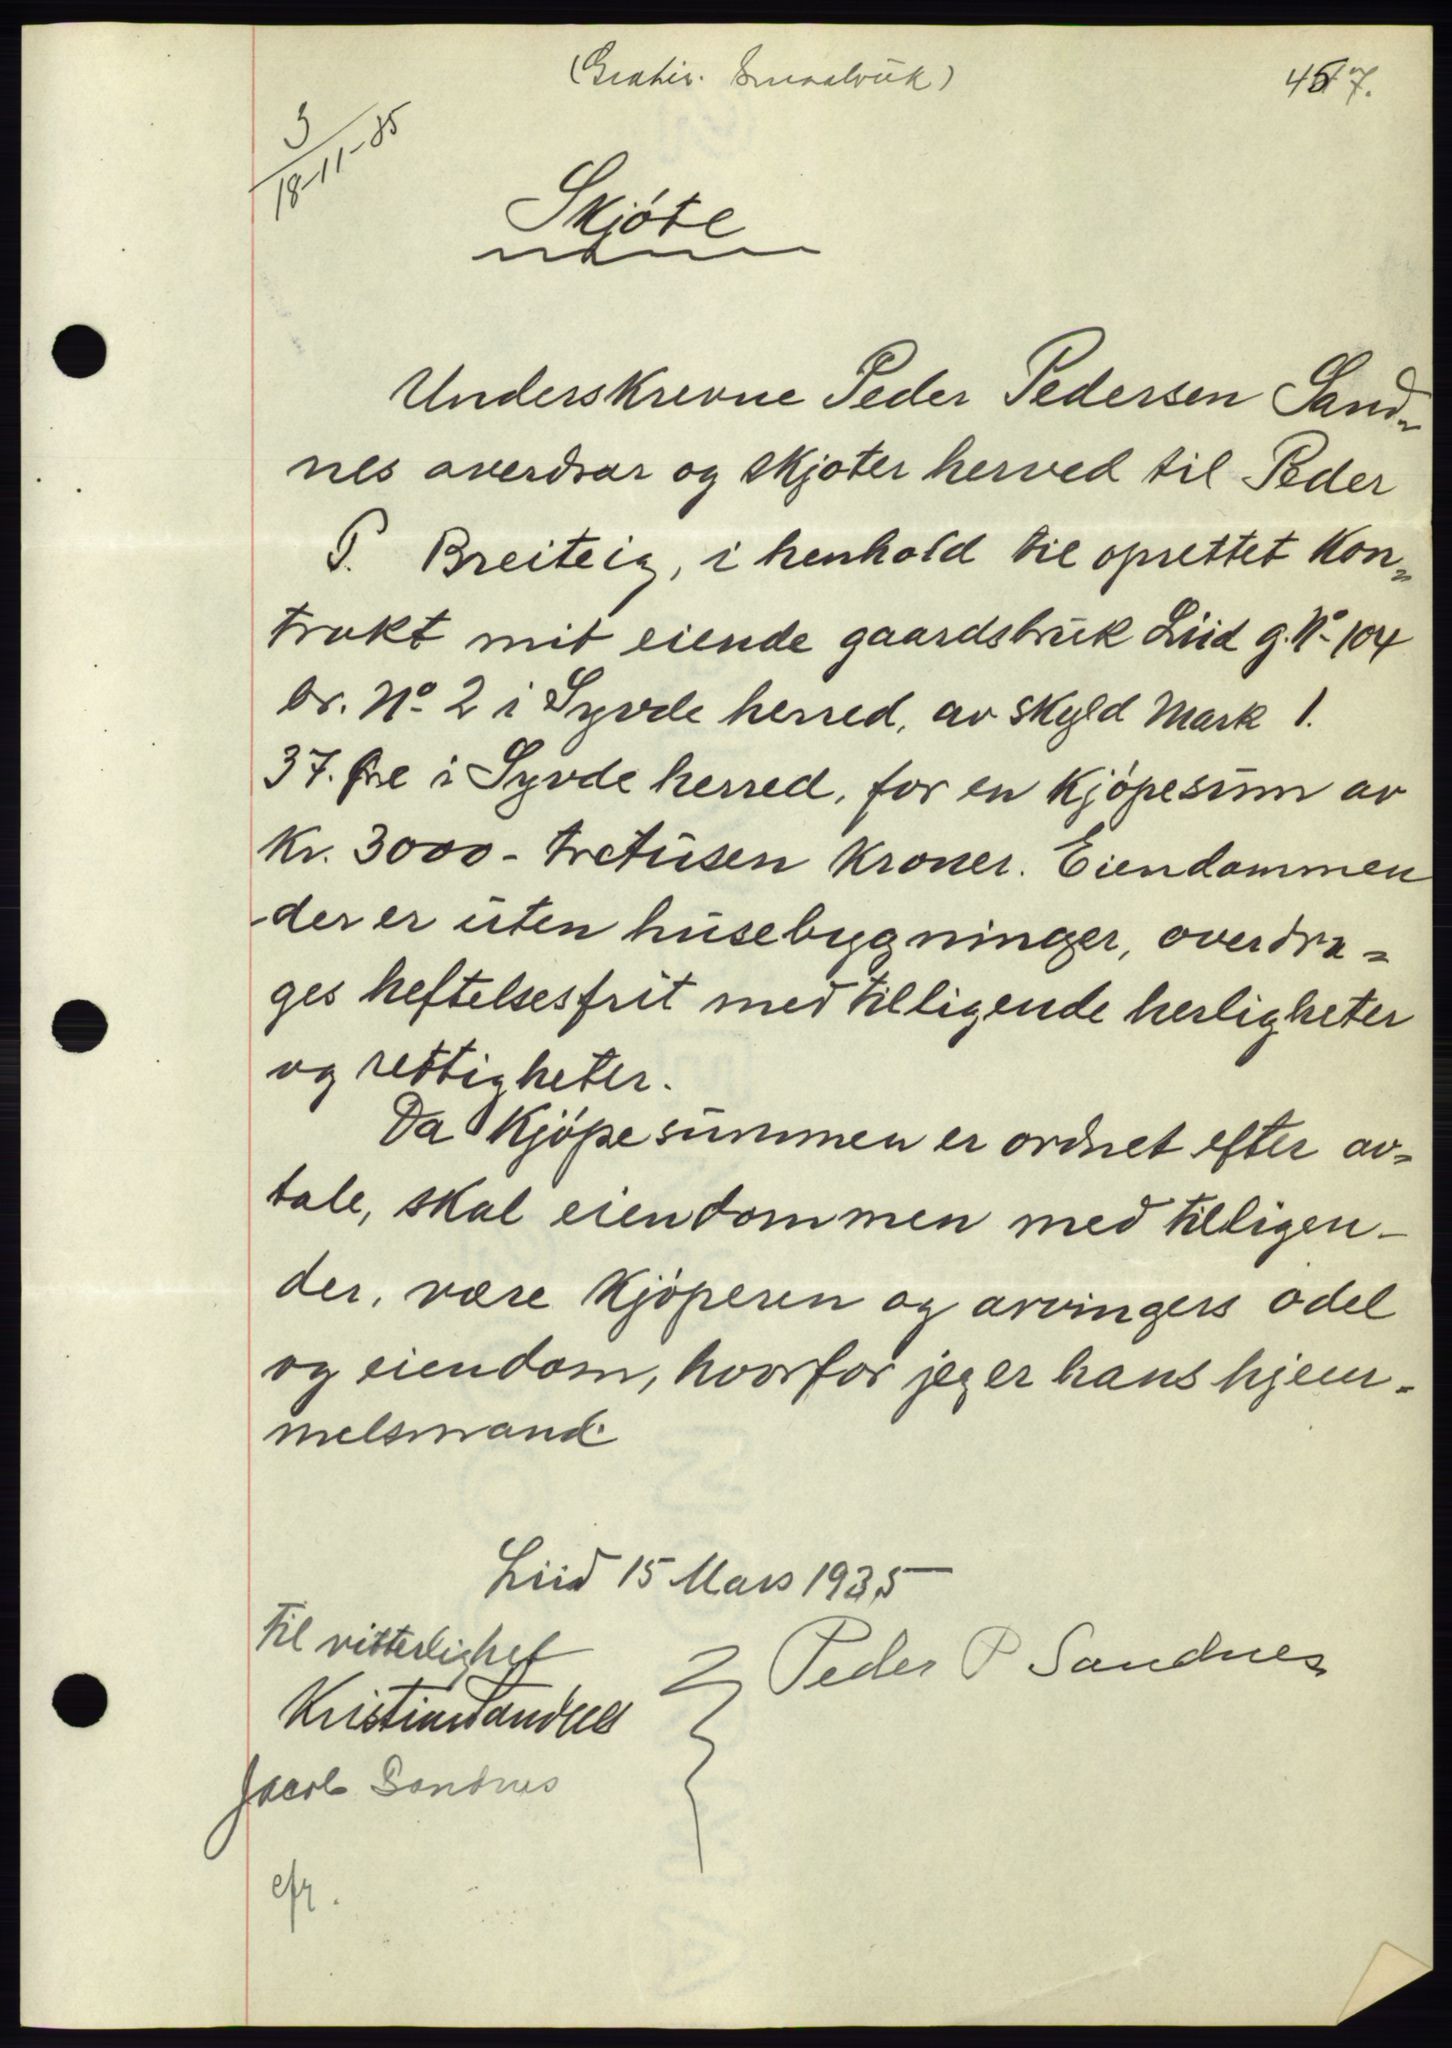 (Gratis. Smaabruk)
457.
3
18-11-35
Skjöte
Underskrevne Peder Pedersen Sand-
nes averdrar og skjøter herved til Peder
P. Breiteig, i henhold til oprettet Kon-
trakt mit eiende gaardsbruk Liid g. No 104
br. No 2 i Syvde herred, av skyld Mark 1.
37. Øre i Syvde herred, for en kjöpesum av
Kr. 3000 - tretusen Kroner. Eiendommen
der er uten husebygninger, overdra-
ges heftelsesfrit med tilligende herligheter
og rettigheter.
Da Kjöpesummen er ordnet efter av-
tale, skal eiendommen med tilligen-
der, være kjöperen og arvingers odel
og eiendom, hvorfor jeg er hans hjem-
melsmand.
Liid 15 Mars 1935
Til vitterlighet
Peder P Sandnes
Kristian Sandnes
Jacob Sandnes